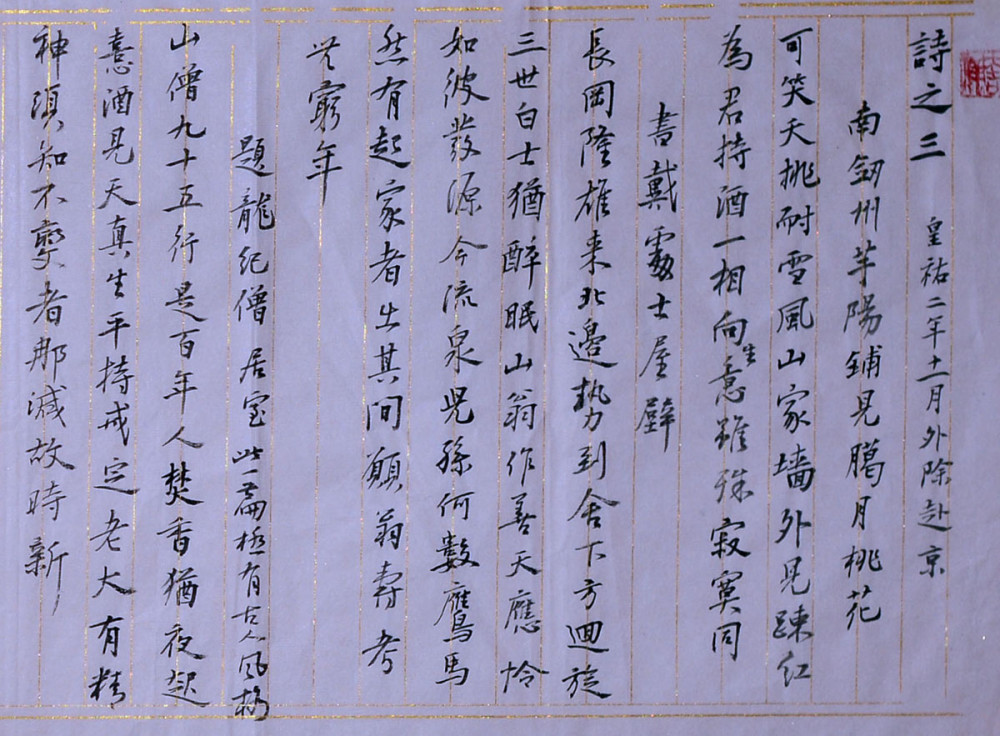 詩之三 皇祐二年十一月外除赴京
南劒州芋陽鋪見臈月桃花
可笑夭桃耐雪風山家墻外見踈紅
為君持酒一相向生意雖殊寂寞同
書戴處士屋壁
長岡隆雄来北邉勢到舎下方迴旋
三世白士猶醉眠山翁作善天應怜
如彼發源今流泉児孫何數鷹馬
然有起家者出其间願翁壽考
世窮年
題龍紀僧居室 此一篇極有古人風格
山僧九十五行是百年人焚香猶夜起
憙酒見天真生平持戒定老大有精
神須知不變者那減故時新